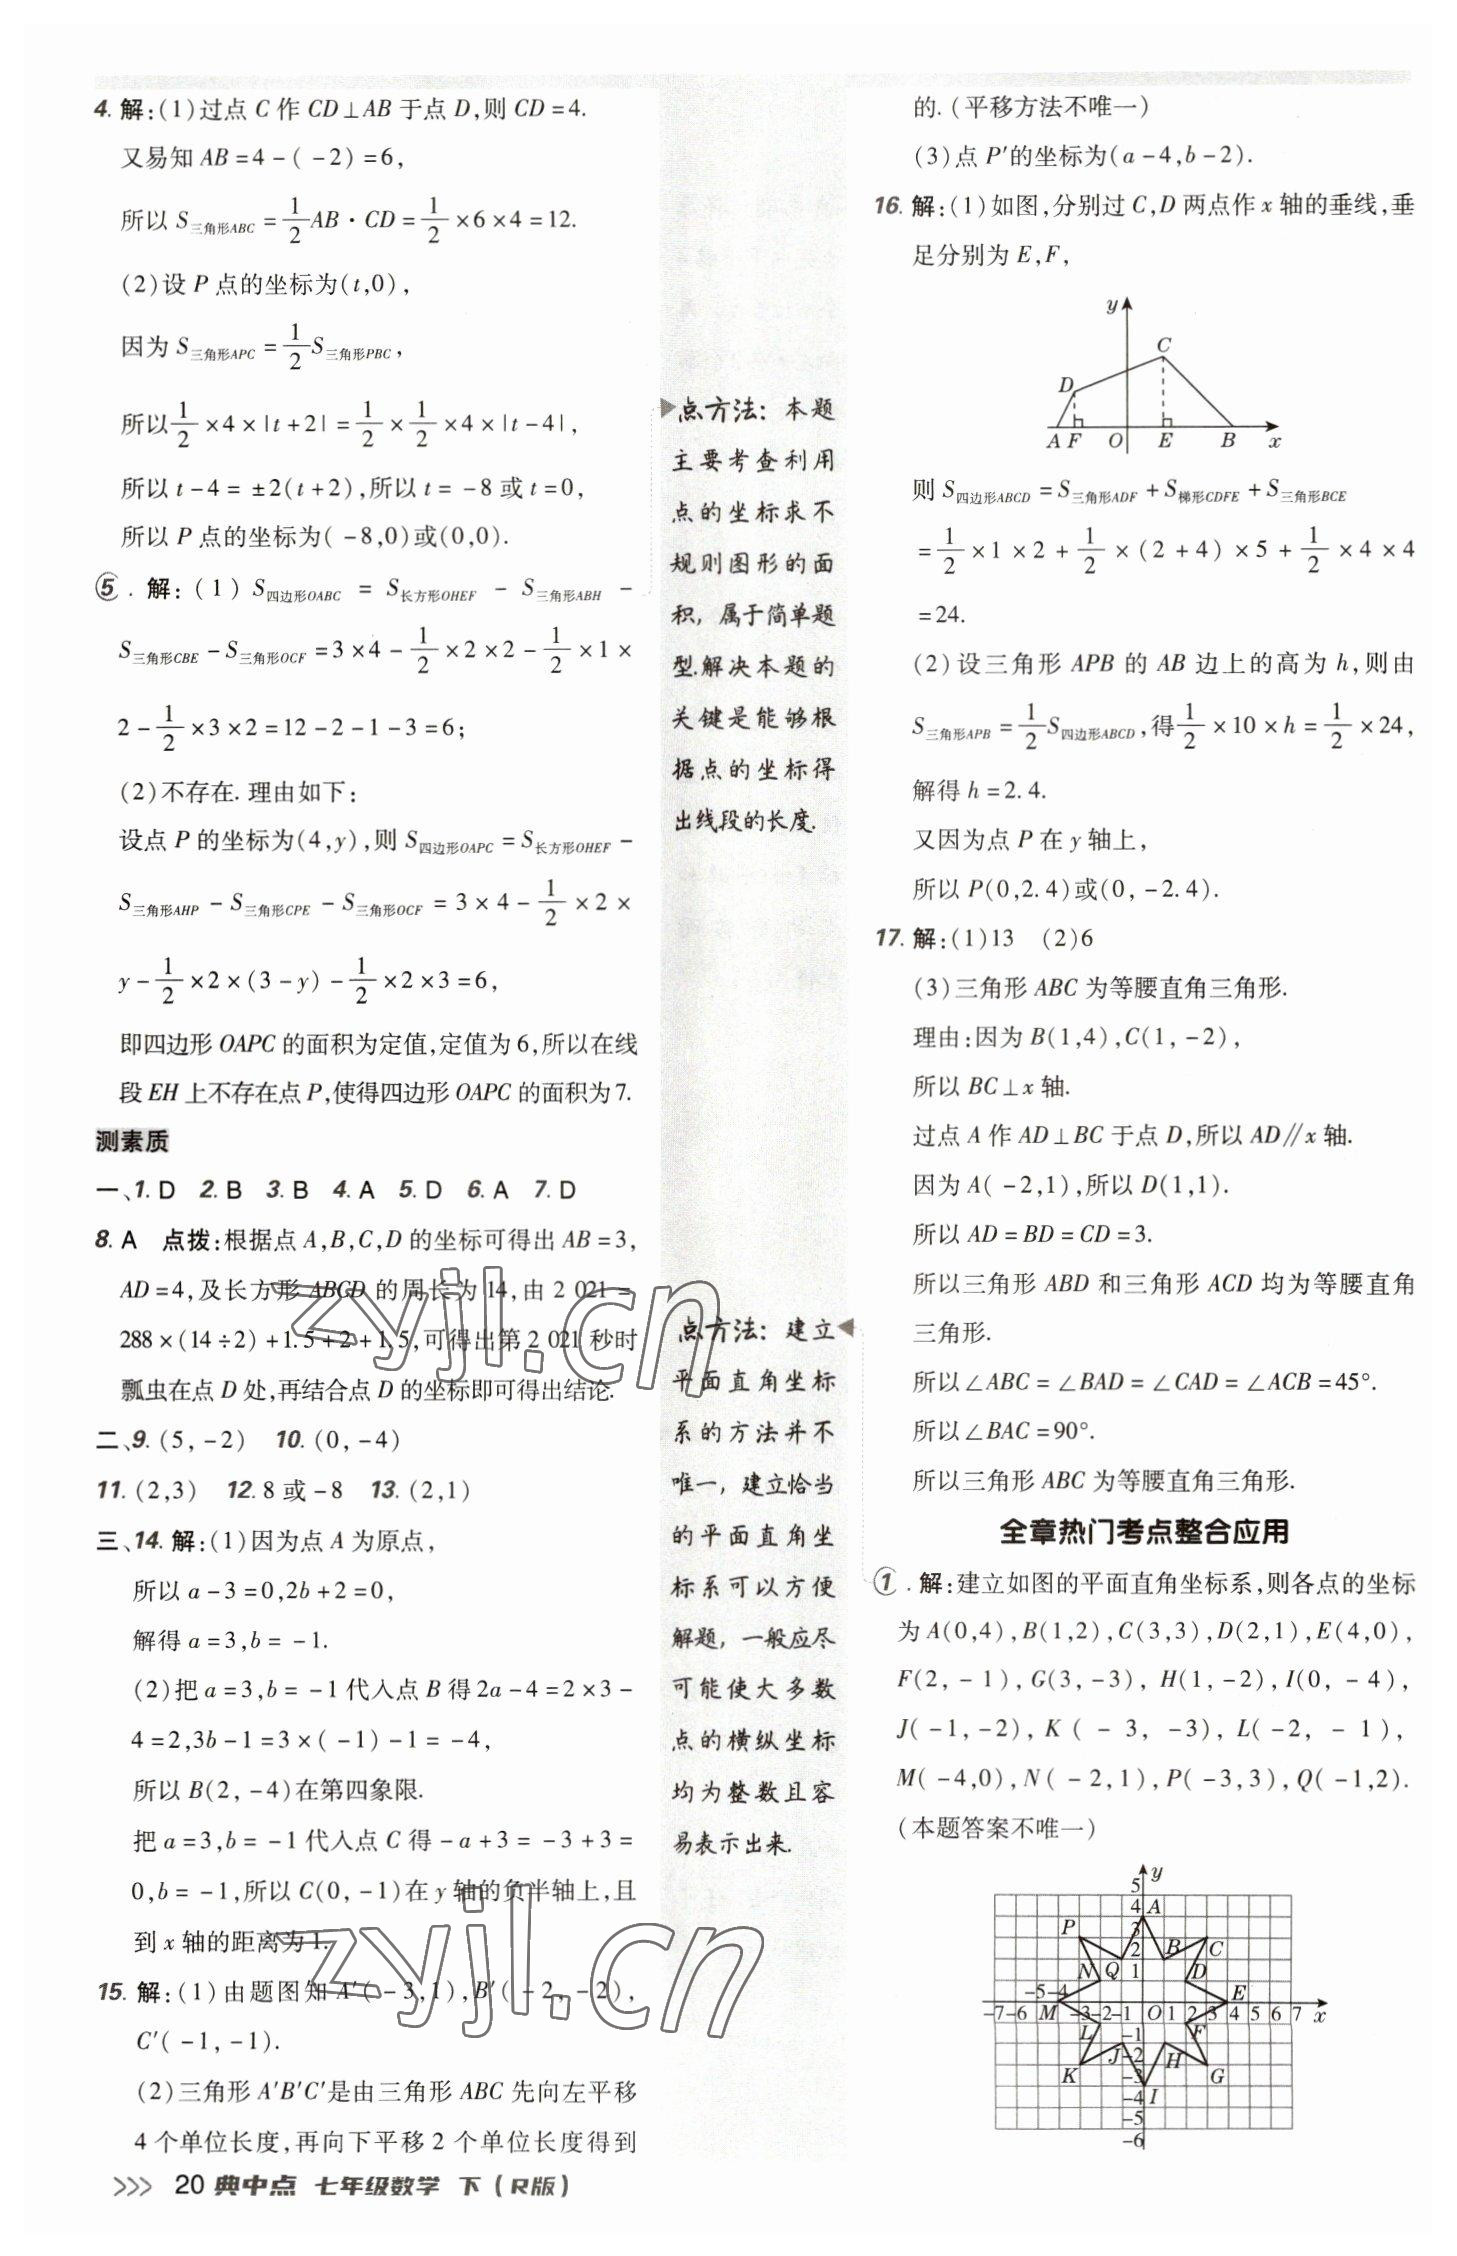 4. 解:(1)过点 C 作 CD⊥AB 于点 D,则 CD=4.
又易知 AB=4-(-2)=6,
所以 S三角形ABC=1/2AB·CD=1/2×6×4=12.
(2)设 P 点的坐标为(t,0),
因为 S三角形APC=1/2S三角形PBC,
所以1/2×4×|t+2|=1/2×1/2×4×|t-4|,
所以 t-4=±2(t+2),所以 t=-8 或 t=0,
所以 P 点的坐标为(-8,0)或(0,0).
⑤. 解:(1)S四边形OABC = S长方形OHEF - S三角形ABH -
S三角形CBE-S三角形OCF=3×4-1/2×2×2-1/2×1×
2-1/2×3×2=12-2-1-3=6;
(2)不存在. 理由如下:
设点 P 的坐标为(4,y),则 S四边形OAPC=S长方形OHEF-
S三角形AHP-S三角形CPE-S三角形OCF=3×4-1/2×2×
y-1/2×2×(3-y)-1/2×2×3=6,
即四边形 OAPC 的面积为定值,定值为 6,所以在线
段 EH 上不存在点 P,使得四边形 OAPC 的面积为 7.
测素质
一、1. D 2. B 3. B 4. A 5. D 6. A 7. D
8. A 点拨:根据点 A,B,C,D 的坐标可得出 AB=3,
AD=4,及长方形 ABCD 的周长为 14,由 2 021=
288×(14÷2)+1.5+2+1.5,可得出第 2 021 秒时
瓢虫在点 D 处,再结合点 D 的坐标即可得出结论.
二、9. (5,-2) 10. (0,-4)
11. (2,3) 12. 8 或-8 13. (2,1)
三、14. 解:(1)因为点 A 为原点,
所以 a-3=0,2b+2=0,
解得 a=3,b=-1.
(2)把 a=3,b=-1 代入点 B 得 2a-4=2×3-
4=2,3b-1=3×(-1)-1=-4,
所以 B(2,-4)在第四象限.
把 a=3,b=-1 代入点 C 得 -a+3=-3+3=
0,b=-1,所以 C(0,-1)在 y 轴的负半轴上,且
到 x 轴的距离为 1.
15. 解:(1)由题图知 A′(-3,1),B′(-2,-2),
C′(-1,-1).
(2)三角形 A′B′C′是由三角形 ABC 先向左平移
4 个单位长度,再向下平移 2 个单位长度得到
点方法：本题
主要考查利用
点的坐标求不
规则图形的面
积，属于简单题
型.解决本题的
关键是能够根
据点的坐标得
出线段的长度.
点方法：建立
平面直角坐标
系的方法并不
唯一，建立恰当
的平面直角坐
标系可以方便
解题，一般应尽
可能使大多数
点的横纵坐标
均为整数且容
易表示出来.
的.(平移方法不唯一)
(3)点 P′的坐标为(a-4,b-2).
16. 解:(1)如图,分别过 C,D 两点作 x 轴的垂线,垂
足分别为 E,F,
y
C
D
A F O E B x
则 S四边形ABCD=S三角形ADF+S梯形CDFE+S三角形BCE
=1/2×1×2+1/2×(2+4)×5+1/2×4×4
=24.
(2)设三角形 APB 的 AB 边上的高为 h,则由
S三角形APB=1/2S四边形ABCD,得1/2×10×h=1/2×24,
解得 h=2.4.
又因为点 P 在 y 轴上,
所以 P(0,2.4)或(0,-2.4).
17. 解:(1)13 (2)6
(3)三角形 ABC 为等腰直角三角形.
理由:因为 B(1,4),C(1,-2),
所以 BC⊥x 轴.
过点 A 作 AD⊥BC 于点 D,所以 AD∥x 轴.
因为 A(-2,1),所以 D(1,1).
所以 AD=BD=CD=3.
所以三角形 ABD 和三角形 ACD 均为等腰直角
三角形.
所以∠ABC=∠BAD=∠CAD=∠ACB=45°.
所以∠BAC=90°.
所以三角形 ABC 为等腰直角三角形.
全章热门考点整合应用
①. 解:建立如图的平面直角坐标系,则各点的坐标
为 A(0,4),B(1,2),C(3,3),D(2,1),E(4,0),
F(2,-1),G(3,-3),H(1,-2),I(0,-4),
J(-1,-2),K(-3,-3),L(-2,-1),
M(-4,0),N(-2,1),P(-3,3),Q(-1,2).
(本题答案不唯一)
y
5
4 A
P 3
2 B C
N Q 1 D
-5-4 E
-7-6 M -3-2-1 O 1 2 3 4 5 6 7 x
L -1 F
J -2 H
K -3 G
-4 I
-5
-6
20 典中点 七年级数学 下（R版）
zyjl.cn
zyjl.cn